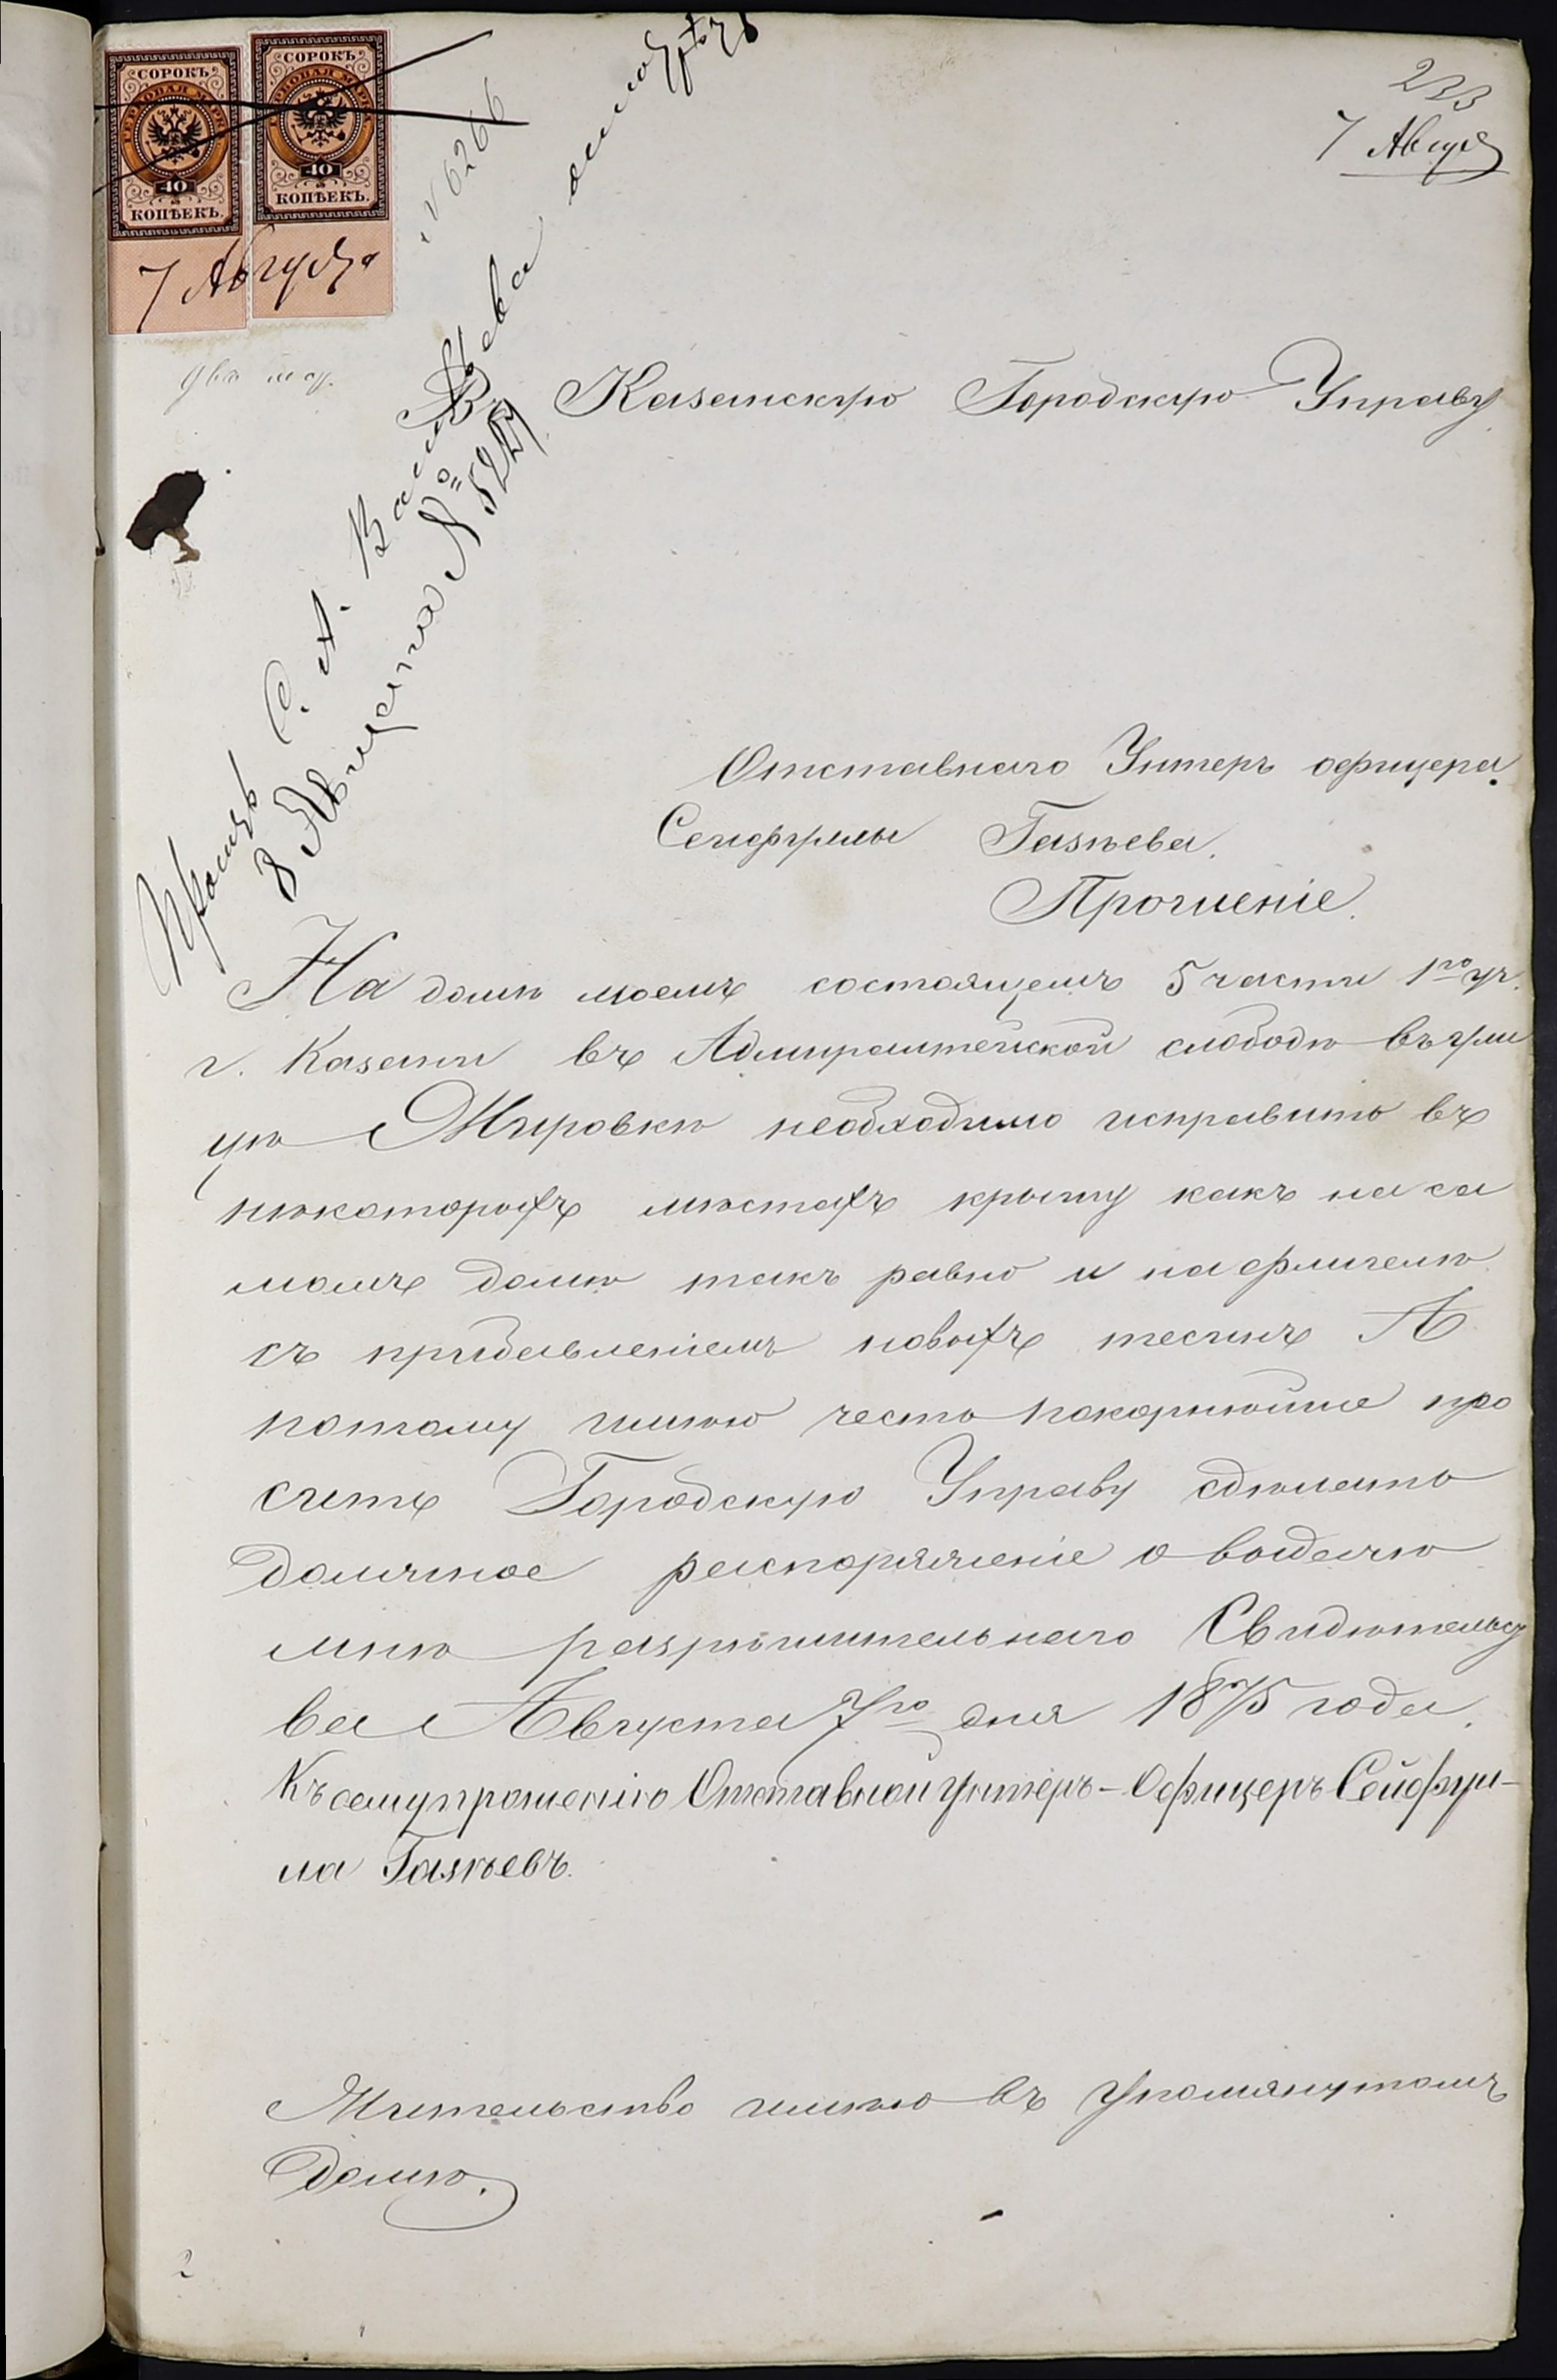 233
7 Августа
СОРОКЪ
ГЕРБОВАЯ МАРКА
40
КОПѢЕКЪ.
СОРОКЪ
ГЕРБОВАЯ МАРКА
40
КОПѢЕКЪ.
7 Августа
№ 6266
Просить С. А. Васильева осмотрѣть
8 Августа № 5227
Въ Казанскую Городскую Управу
Отставнаго Унтеръ офицера
Сейфуллы Газѣева.
Прошеніе.
На домѣ моемъ состоящемъ 5 части 1го уч.
г. Казани въ Адмиралтейской слободѣ въ ули
цѣ Жировки необходимо исправить въ
нѣкоторыхъ мѣстахъ крышу какъ на са
момъ домѣ такъ равно и на флигелѣ
съ прибавленіемъ новыхъ тесинъ А
потому имѣю честь покорнѣйше про
сить Городскую Управу сдѣлать
должное распоряженіе о выдачѣ
мнѣ разрѣшительнаго Свидѣтельст
ва Августа 7го дня 1875 года.
Къ сему прошенію Отставной Унтеръ-Офицеръ Сейфул-
ла Газѣевъ.
Жительство имѣю въ упомянутомъ
домѣ.
2